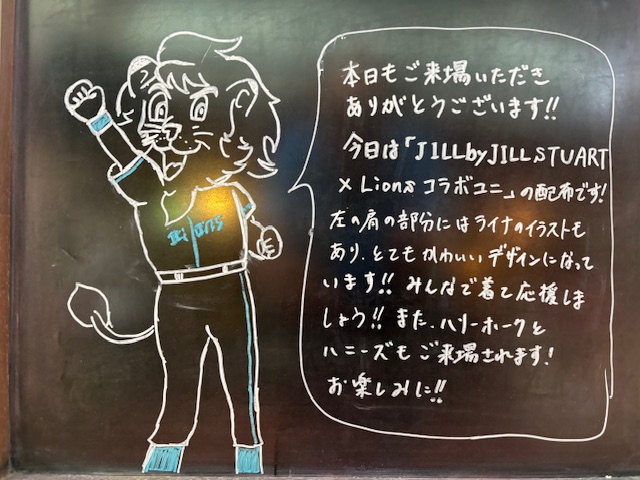 Lions
本日もご来場いただき
ありがとうございます!!
今日は「JILLbyJILLSTUART
×Lionsコラボユニ」の配布です!
左の肩の部分にはライナのイラストも
あり、とてもかわいいデザインになって
います!! みんなで着て応援しま
しょう!! また、ハリーホークと
ハニーズもご来場されます!
お楽しみに!!